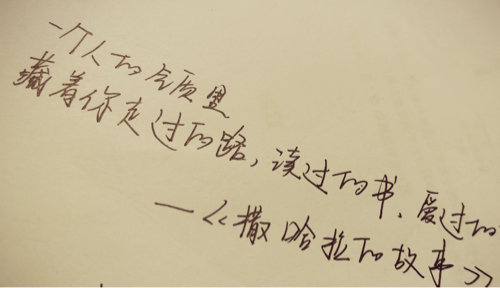 一个人的气质里
藏着你走过的路，读过的书、爱过的
—《撒哈拉的故事》